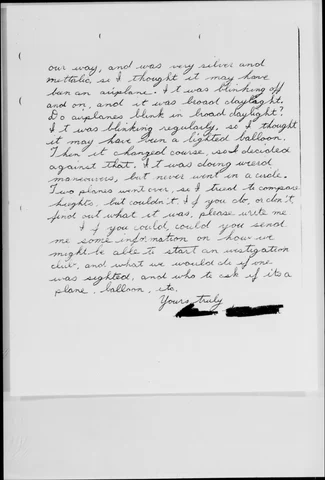 our way, and was very silver and
mettalic, so I thought it may have
ben an airplane. It was blinking off
and on, and it was broad daylight.
Do airplanes blink in broad daylight?
It was blinking regularly, so I thought
it may have been a lighted balloon.
Then it changed course, so I decided
against that. It was doing weird
maneuvers, but never went in a circle.
Two planes went over, so I tried to compare
heights, but couldn't. If you do, or don't
find out what it was, please write me
If you could, could you send
me some information on how we
might be able to start an investigation
club, and what we would do if one
was sighted, and who to ask if its a
plane, balloon, etc.
Yours truly